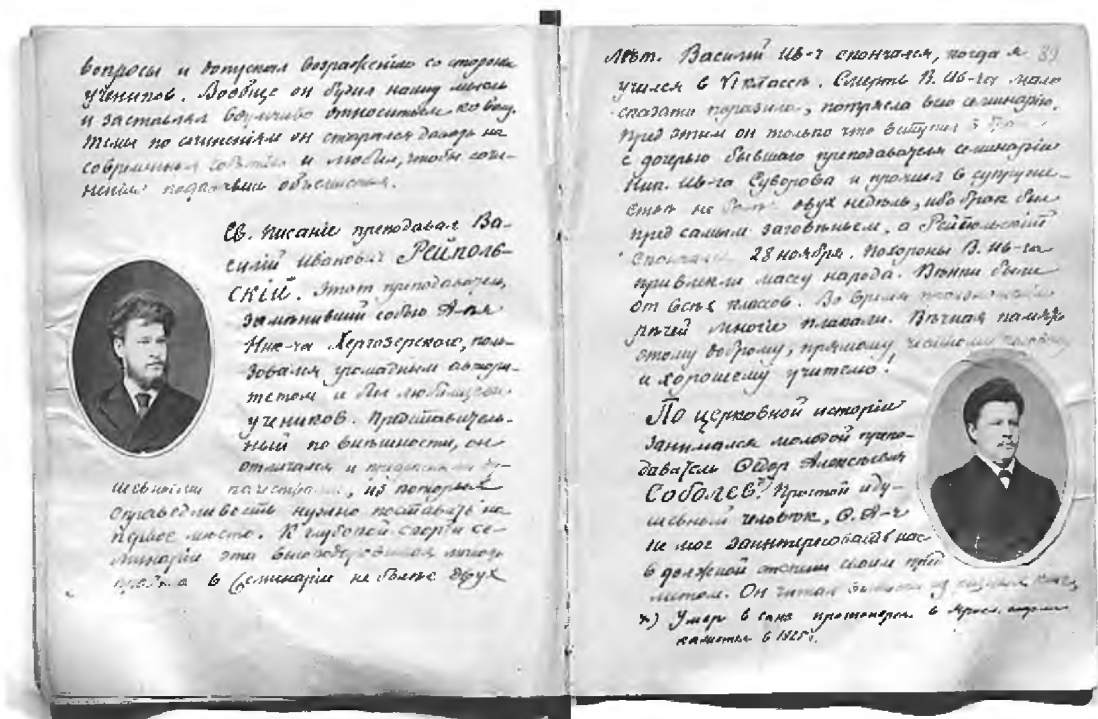 вопросы и допускал возраженiя со стороны
учеников. Вообще он будил нашу мысль
и заставлял вдумчиво относиться ко всему.
Темы по сочинениям он старался давать на
современныя события и любил, чтобы сочи-
ненiя подавали
Св. Писанiе преподавал Ва-
силiй Иванович Рейполь-
скiй. Этот преподаватель,
заменивший собою А-ея
Ник-ча Хергозерского, поль-
зовался громадным автори-
тетом и был любимцем
учеников. Представитель-
ный по внешности, он
отличался и ду-
шевными качествами, из которых
справедливость нужно поставить на
первое место. К глубокой скорби се-
минарiи эта личность
в Семинарiи не более двух
89
лет. Василiй Ив-ч скончался, когда я
учился в VI классе. Смерть В. Ив-ча мало
сказать поразила, потрясла всю семинарiю.
Пред этим он только что вступил в
с дочерью бывшаго преподавателя семинарiи
Ник. Ив-ча Суворова и прожил в супруже-
стве не более двух недель, ибо брак был
пред самым заговеньем, а Рейпольскiй
скончался 28 ноября. Похороны В. Ив-ча
привлекли массу народа. Венки были
от всех классов. Во время произнесенiя
речей многiе плакали. Вечная память
этому доброму, прямому, честному человеку
и хорошему учителю!
По церковной исторiи
занимался молодой препо-
даватель Ѳедор Алексеевич
Соболев.*) Простой и ду-
шевный человек, Ѳ. А-ч
не мог заинтересовать нас
в должной степени своим пред-
метом. Он читал из разных книг
*) Умер в сане протоиерея в
в 1920 г.